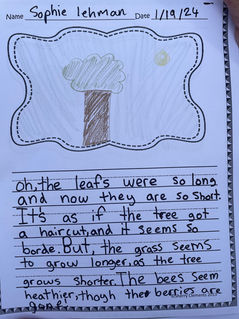 Name Sophie lehman Date 1/19/24
oh, the leafs were so long
and now they are so short.
It's as if the tree got
a haircut, and it seems so
borde. But, the grass seems
to grow longer, as the tree
grows shorter. The bees seem
heathier, thoyh the berries are
gone!